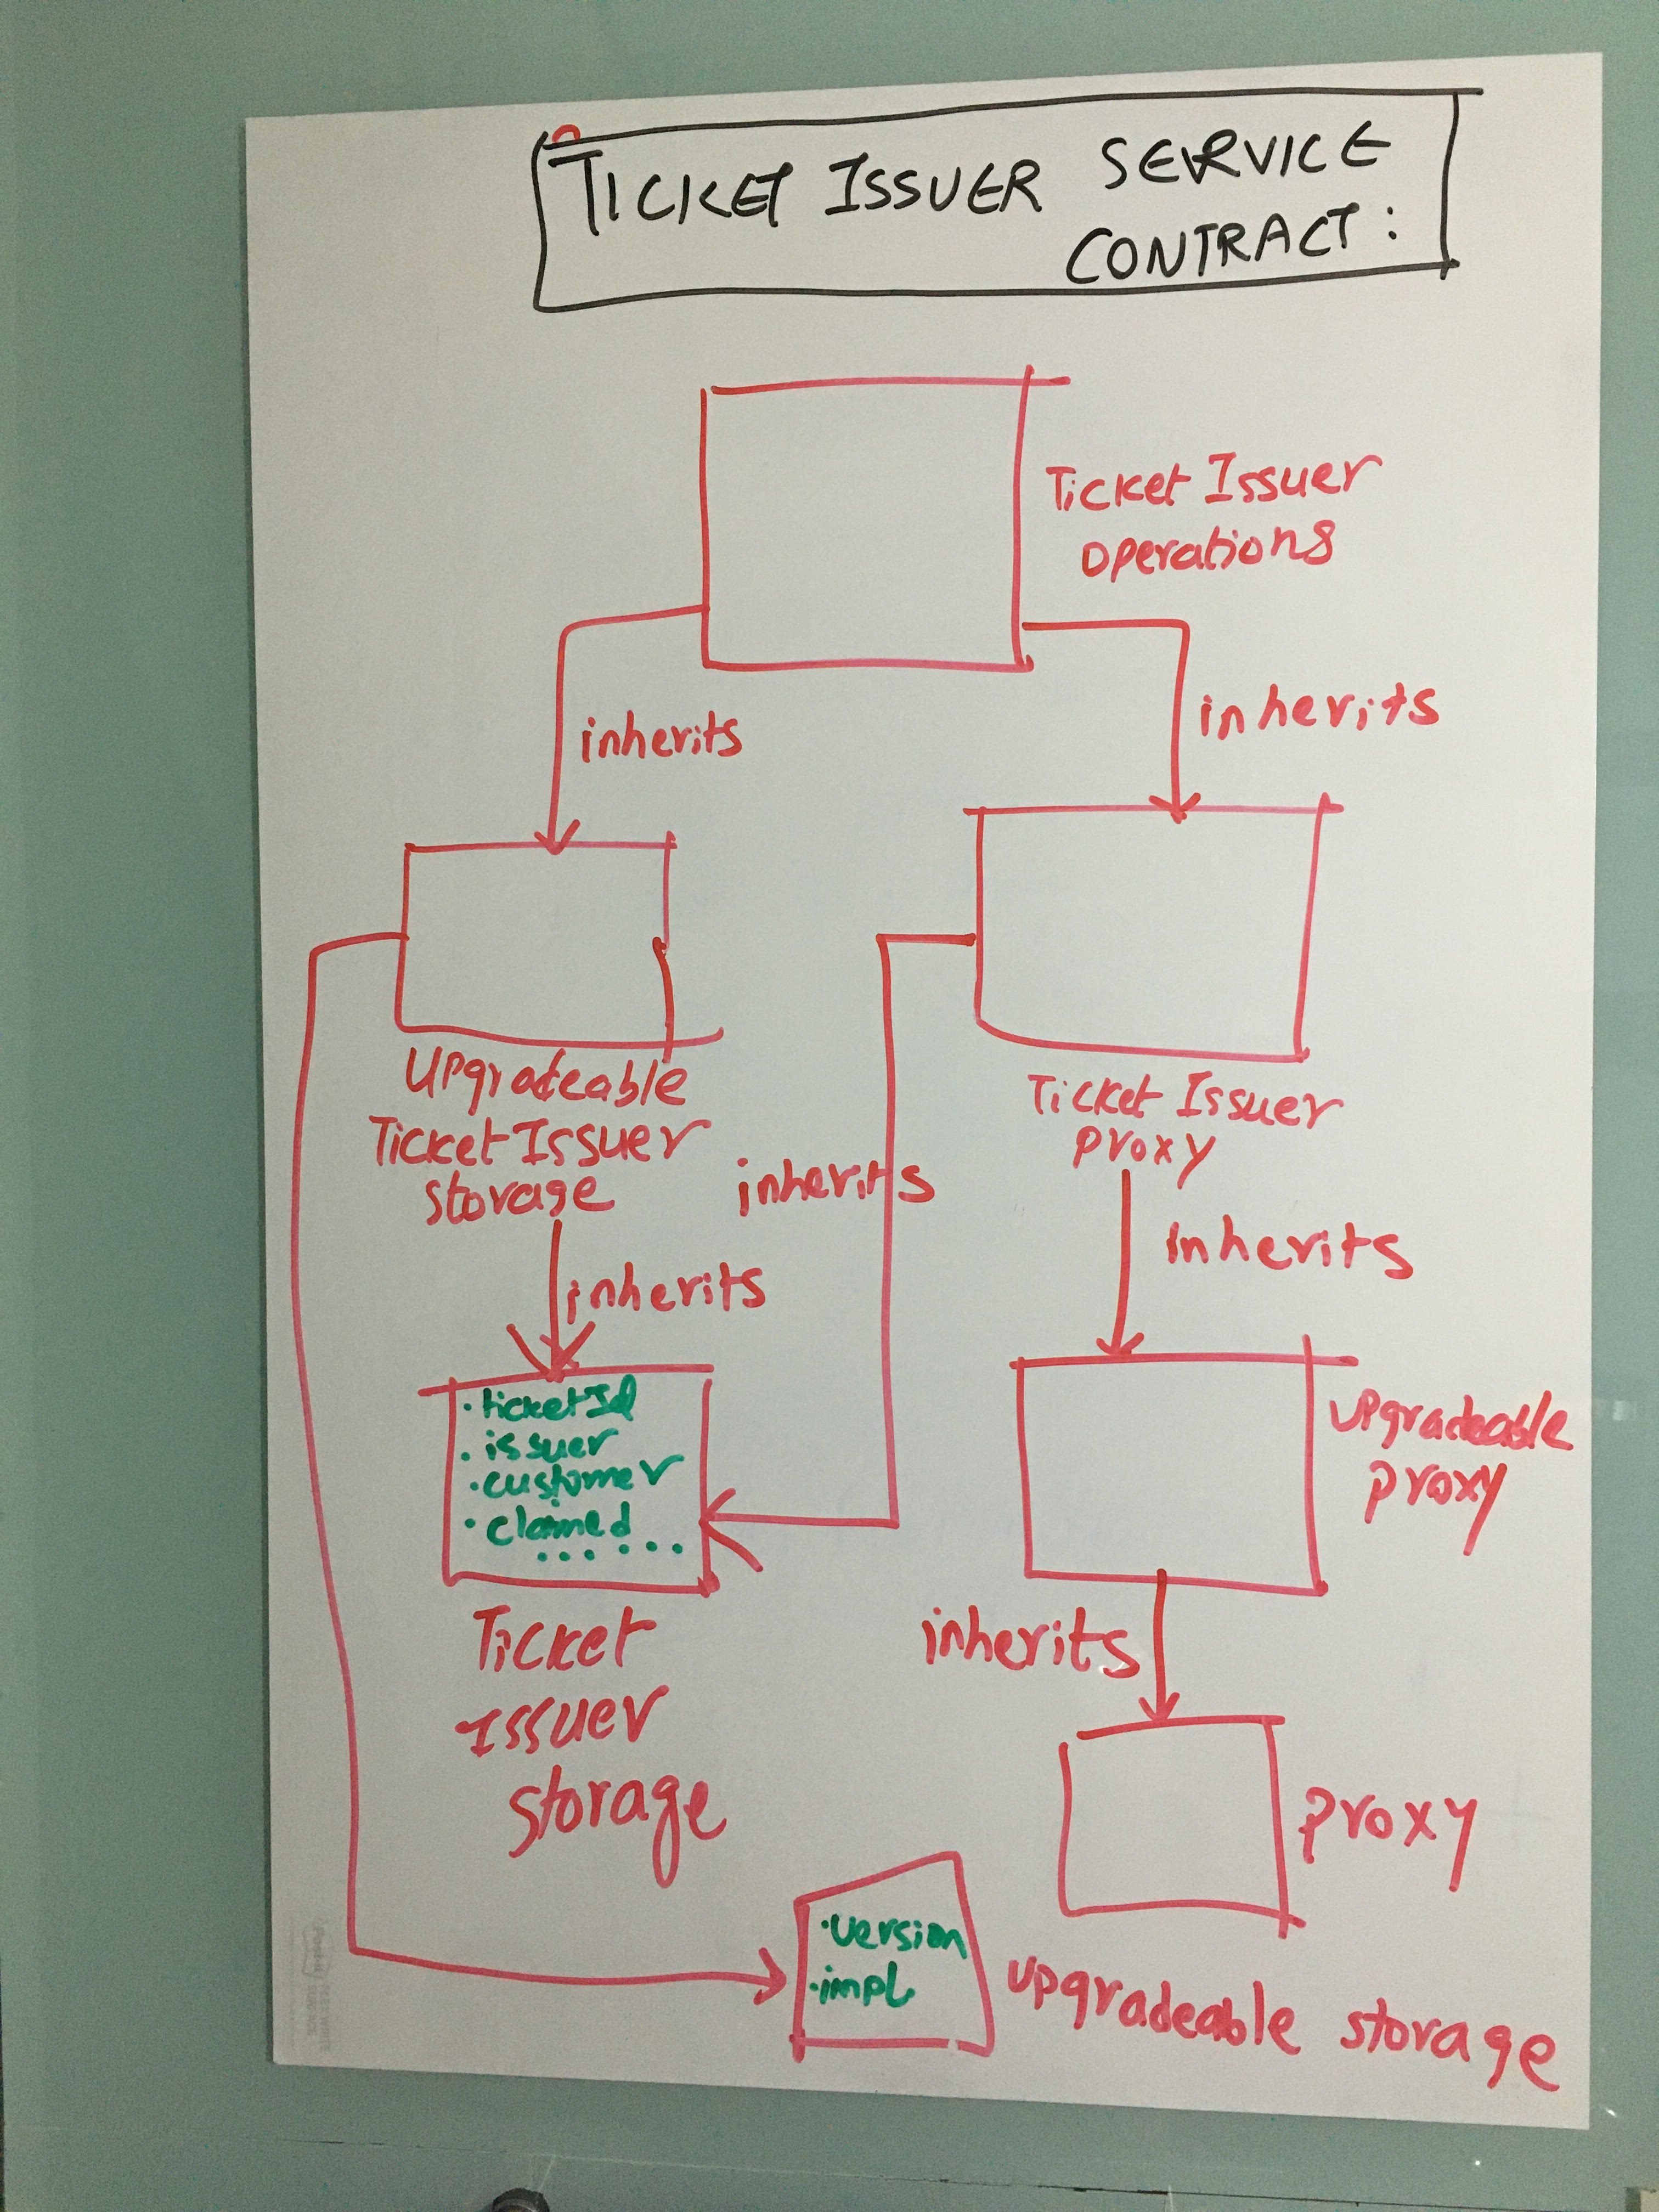 TICKET ISSUER SERVICE
CONTRACT:
Ticket Issuer
operations
inherits
inherits
Upgradeable
Ticket Issuer
storage
Ticket Issuer
proxy
inherits
inherits
inherits
• ticketId
• issuer
• customer
• claimed
... ...
upgradeable
proxy
Ticket
Issuer
storage
inherits
proxy
• version
• impl
upgradeable storage